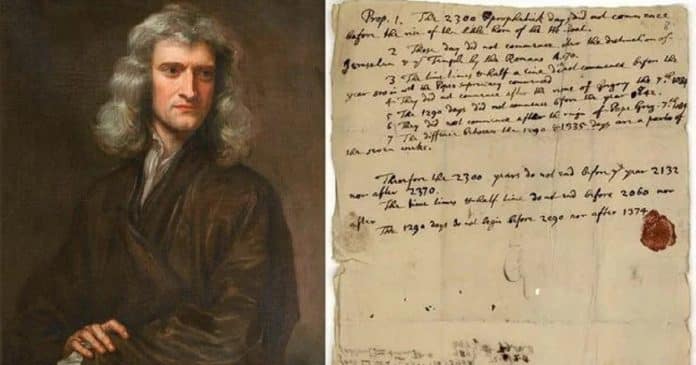 Prop. 1. The 2300 prophetick days did not commence
before the rise of the little horn of the He Goat.
2 Those day did not commence after the destruction of
Jerusalem & ye Temple by the Romans A.
3 The time times & half a time did not commence before the
year 800 in wch the Popes supremacy commenced
4 They did not commence after the reigne of Gregory the 7th 1084
5 The 1290 days did not commence before the year 842.
6 They did not commence after the reigne of Pope Greg. 7th 1084
7 The difference between the 1290 & 1335 days are a parts of
the seven weeks.
Therfore the 2300 years do not end before ye year 2132
nor after 2370.
The time times & half time do not end before 2060 nor
after
The 1290 days do not begin before 2090 nor after 1374